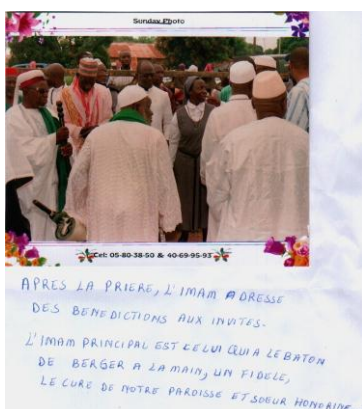 Sunday Photo
Cel: 05-80-38-50 & 40-69-95-93
APRES LA PRIERE, L'IMAM ADRESSE
DES BENEDICTIONS AUX INVITES.
L'IMAM PRINCIPAL EST CELUI QUI A LE BATON
DE BERGER A LA MAIN, UN FIDELE,
LE CURE DE NOTRE PAROISSE ET SOEUR HONORINE